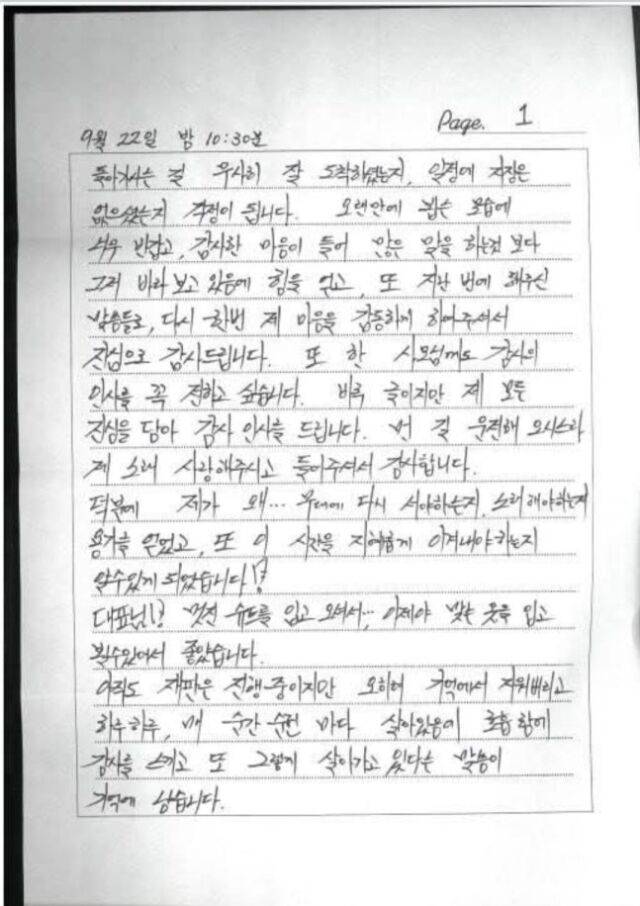 Page. 1
9월 22일 밤 10:30분
돌아가시는 길 무사히 잘 도착하셨는지, 일정에 지장은
없으셨는지 걱정이 됩니다. 오랜만에 뵙는 모습에
너무 반갑고, 감사한 마음이 들어 많은 말을 하는것 보다
그저 바라보고 있음에 힘을 얻고, 또 지난 번에 해주신
말씀들로, 다시 한번 제 마음을 감동하게 하여주셔서
진심으로 감사드립니다. 또 한 사모님께도 감사의
인사를 꼭 전하고 싶습니다. 비록 글이지만 제 모든
진심을 담아 감사 인사를 드립니다. 먼 길 운전해 오시느라
제 노래 사랑해주시고 들어주셔서 감사합니다.
덕분에 제가 왜... 무대에 다시 서야하는지, 노래해야하는지
용기를 얻었고, 또 이 시간을 지혜롭게 이겨내야하는지
알수있게 되었습니다!?
대표님!? 멋진 슈트를 입고 오셔서... 이제야 맞는 옷을 입고
뵐수있어서 좋았습니다.
아직도 재판은 진행중이지만 오히려 기억에서 지워버리고
하루하루, 매 순간 순간 마다 살아있음에 호흡함에
감사를 느끼고 또 그렇게 살아가고 있다는 말씀이
기억에 남습니다.